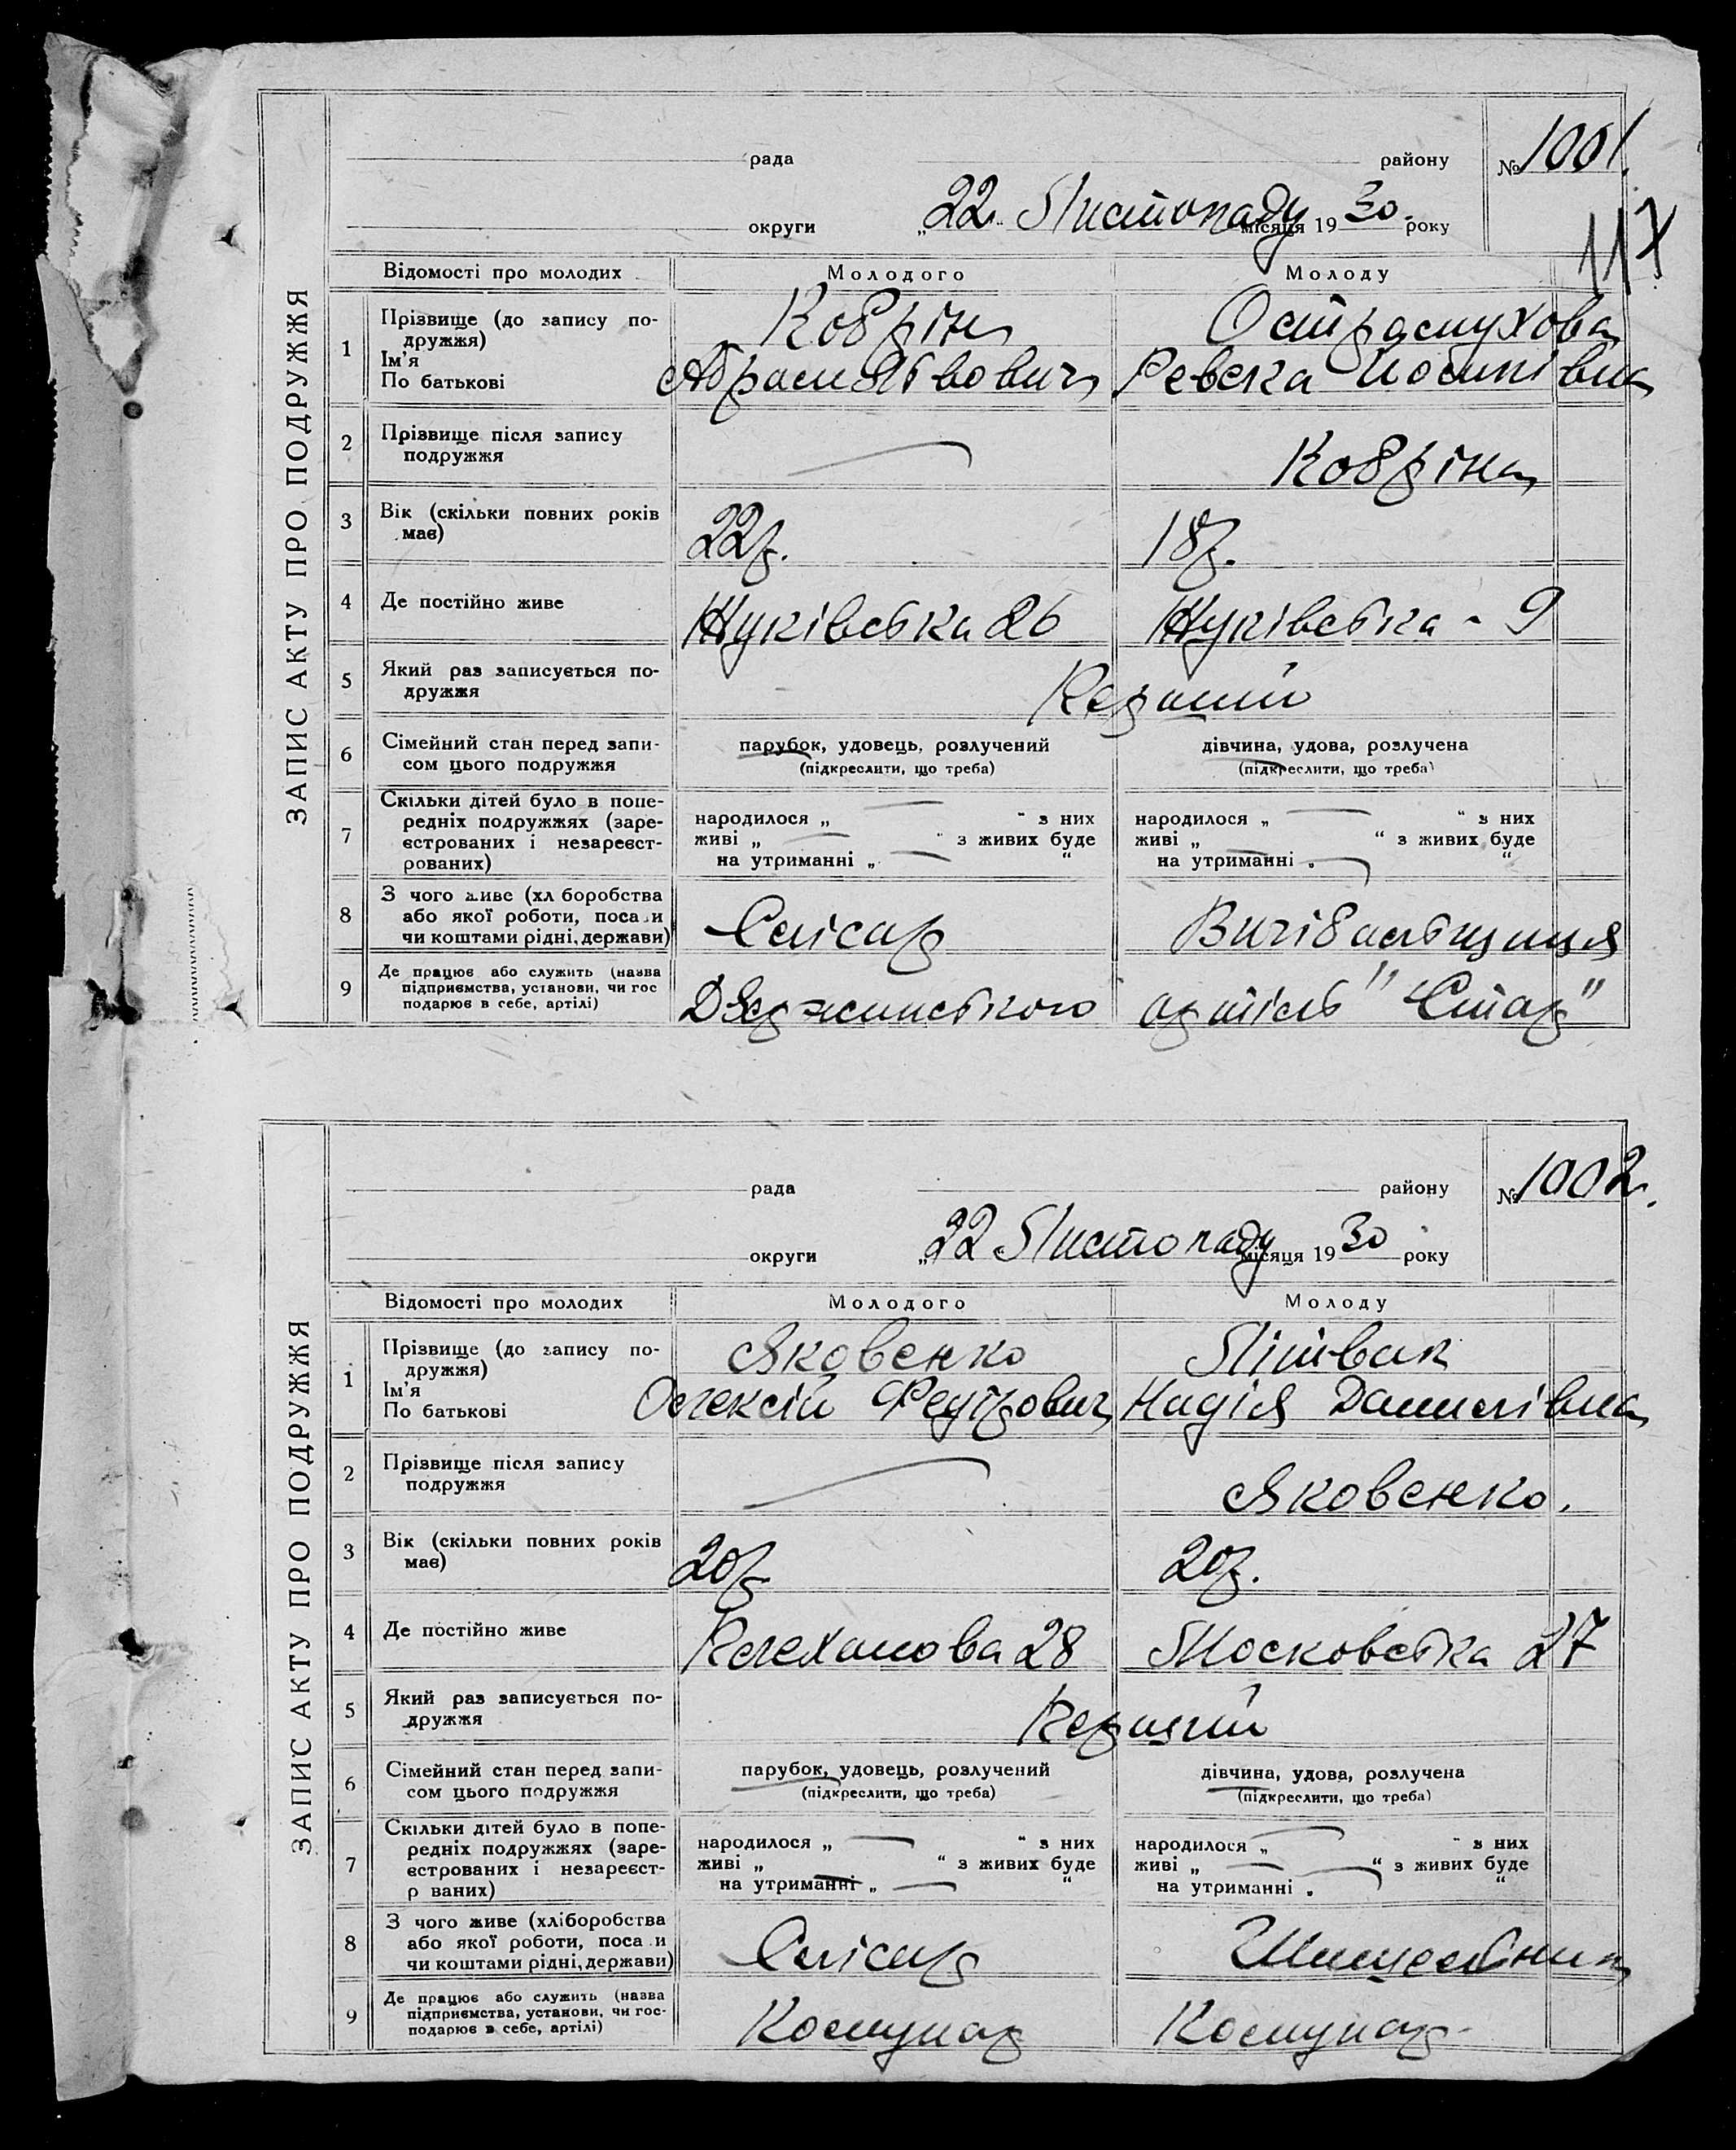 ЗАПИС АКТУ ПРО ПОДРУЖЖЯ
рада району № 1001.
округи „22 Листопаду місяця 1930 року
117
Відомості про молодих Молодого Молоду
1 Прізвище (до запису по-
дружжя) Кобрін Остромухова
Ім'я
По батькові Абрам Львович Ревека Йосипівна
2 Прізвище після запису
подружжя — Кобріна
3 Вік (скільки повних років
має) 22 р. 18 р.
4 Де постійно живе Жуківська 26 Жуківська - 9
5 Який раз записується по-
дружжя Перший
6 Сімейний стан перед запи-
сом цього подружжя
парубок, удовець, розлучений дівчина, удова, розлучена
(підкреслити, що треба) (підкреслити, що треба)
7 Скільки дітей було в попе-
редніх подружжях (заре-
єстрованих і незареєст-
рованих)
народилося „ — “ з них народилося „ — “ з них
живі „ — “ з живих буде живі „ — “ з живих буде
на утриманні „ — “ на утриманні „ — “
8 З чого живе (хл боробства
або якої роботи, поса и
чи коштами рідні, держави) Слісар
9 Де працює або служить (назва
підприємства, установи, чи гос
подарює в себе, артілі) Дзержинського артіль "Стар"
ЗАПИС АКТУ ПРО ПОДРУЖЖЯ
рада району № 1002.
округи „22 Листопаду місяця 1930 року
Відомості про молодих Молодого Молоду
1 Прізвище (до запису по-
дружжя) Яковенко Літвак
Ім'я
По батькові Олексій Федорович Надія Данилівна
2 Прізвище після запису
подружжя — Яковенко.
3 Вік (скільки повних років
має) 20 р. 20 р.
4 Де постійно живе Плеханова 28 Московська 27
5 Який раз записується по-
дружжя Перший
6 Сімейний стан перед запи-
сом цього подружжя
парубок, удовець, розлучений дівчина, удова, розлучена
(підкреслити, що треба) (підкреслити, що треба)
7 Скільки дітей було в попе-
редніх подружжях (заре-
єстрованих і незареєст-
р ваних)
народилося „ — “ з них народилося „ — “ з них
живі „ “ з живих буде живі „ — “ з живих буде
на утриманні „ — “ на утриманні „ “
8 З чого живе (хліборобства
або якої роботи, поса и
чи коштами рідні, держави) Слісар
9 Де працює або служить (назва
підприємства, установи, чи гос-
подарює в себе, артілі) Комунар Комунар